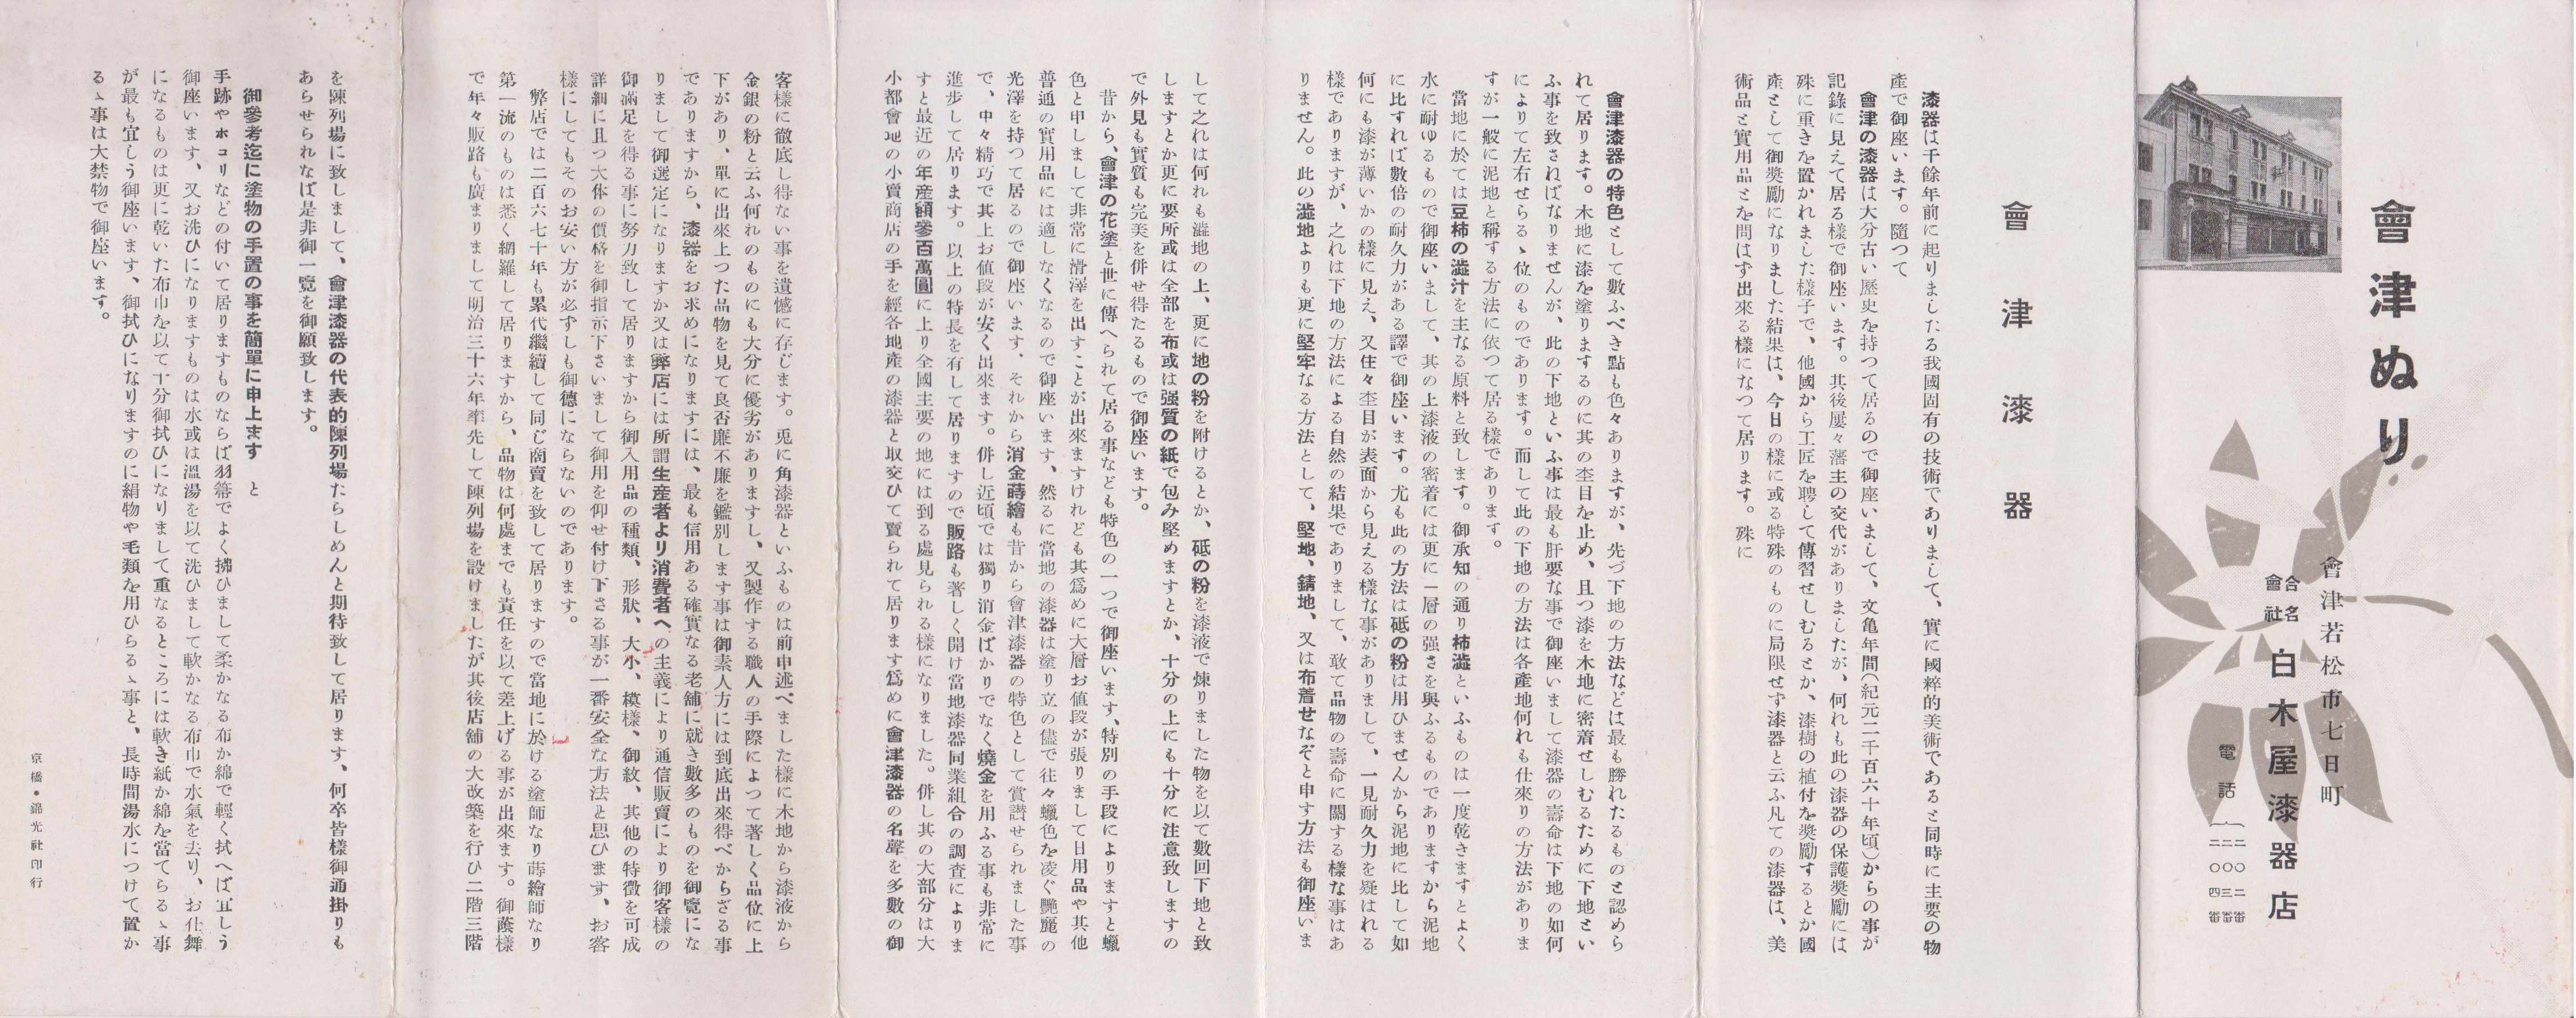 會津ぬり
會津若松市七日町
合名會社 白木屋漆器店
電話 二〇二番
二〇三番
二〇四番
會津漆器
漆器は千餘年前に起りましたる我國固有の技術でありまして、實に國粹的美術であると同時に主要の物
產で御座います。隨つて
會津の漆器は大分古い歷史を持つて居るので御座いまして、文亀年間(紀元二千百六十年頃)からの事が
記錄に見えて居る樣で御座います。其後屢々藩主の交代がありましたが、何れも此の漆器の保護奬勵には
殊に重きを置かれました樣子で、他國から工匠を聘して傳習せしむるとか、漆樹の植付を奬勵するとか國
產として御奬勵になりました結果は、今日の樣に或る特殊のものに局限せず漆器と云ふ凡ての漆器は、美
術品と實用品とを問はず出來る樣になつて居ります。殊に
會津漆器の特色として數ふべき點も色々ありますが、先づ下地の方法などは最も勝れたるものと認めら
れて居ります。木地に漆を塗りまするのに其の杢目を止め、且つ漆を木地に密着せしむるために下地とい
ふ事を致さねばなりませんが、此の下地といふ事は最も肝要な事で御座いまして漆器の壽命は下地の如何
によりて左右せらるゝ位のものであります。而して此の下地の方法は各產地何れも仕來りの方法がありま
すが一般に泥地と稱する方法に依つて居る樣であります。
當地に於ては豆柿の澁汁を主なる原料と致します。御承知の通り柿澁といふものは一度乾きますとよく
水に耐ゆるもので御座いまして、其の上漆液の密着には更に一層の强さを與ふるものでありますから泥地
に比すれば數倍の耐久力がある譯で御座います。尤も此の方法は砥の粉は用ひませんから泥地に比して如
何にも漆が薄いかの樣に見え、又住々杢目が表面から見える樣な事がありまして、一見耐久力を疑はれる
樣でありますが、之れは下地の方法による自然の結果でありまして、敢て品物の壽命に關する樣な事はあ
りません。此の澁地よりも更に堅牢なる方法として、堅地、錆地、又は布着せなぞと申す方法も御座いま
して之れは何れも澁地の上、更に地の粉を附けるとか、砥の粉を漆液で煉りました物を以て數回下地と致
しますとか更に要所或は全部を布或は强質の紙で包み堅めますとか、十分の上にも十分に注意致しますの
で外見も實質も完美を併せ得たるもので御座います。
昔から、會津の花塗と世に傳へられて居る事なども特色の一つで御座います、特別の手段によりますと蠟
色と申しまして非常に滑澤を出すことが出來ますけれども其爲めに大層お値段が張りまして日用品や其他
普通の實用品には適しなくなるので御座います、然るに當地の漆器は塗り立の儘で往々蠟色を凌ぐ艷麗の
光澤を持つて居るので御座います、それから消金蒔繪も昔から會津漆器の特色として賞讃せられました事
で、中々精巧で其上お値段が安く出來ます。併し近頃では獨り消金ばかりでなく燒金を用ふる事も非常に
進步して居ります。以上の特長を有して居りますので販路も著しく開け當地漆器同業組合の調査によりま
すと最近の年產額參百萬圓に上り全國主要の地には到る處見られる樣になりました。併し其の大部分は大
小都會地の小賣商店の手を經各地產の漆器と取交ひて賣られて居ります爲めに會津漆器の名聲を多數の御
客樣に徹底し得ない事を遺憾に存じます。兎に角漆器といふものは前申述べました樣に木地から漆液から
金銀の粉と云ふ何れのものにも大分に優劣がありますし、又製作する職人の手際によつて著しく品位に上
下があり、單に出來上つた品物を見て良否廉不廉を鑑別します事は御素人方には到底出來得べからざる事
でありますから、漆器をお求めになりますには、最も信用ある確實なる老舗に就き數多のものを御覽にな
りまして御選定になりますか又は弊店には所謂生產者より消費者への主義により通信販賣により御客樣の
御滿足を得る事に努力致して居りますから御入用品の種類、形狀、大小、模樣、御紋、其他の特徵を可成
詳細に且つ大体の價格を御指示下さいまして御用を仰せ付け下さる事が一番安全な方法と思ひます、お客
樣にしてもそのお安い方が必ずしも御德にならないのであります。
弊店では二百六七十年も累代繼續して同じ商賣を致して居りますので當地に於ける塗師なり蒔繪師なり
第一流のものは悉く網羅して居りますから、品物は何處までも責任を以て差上げる事が出來ます。御蔭樣
で年々販路も廣まりまして明治三十六年率先して陳列場を設けましたが其後店舗の大改築を行ひ二階三階
を陳列場に致しまして、會津漆器の代表的陳列場たらしめんと期待致して居ります、何卒皆樣御通掛りも
あらせられなば是非御一覽を御願致します。
御參考迄に塗物の手置の事を簡單に申上ますと
手跡やホコリなどの付いて居りますものならば羽箒でよく拂ひまして柔かなる布か綿で輕く拭へば宜しう
御座います、又お洗ひになりますものは水或は溫湯を以て洗ひまして軟かなる布巾で水氣を去り、お仕舞
になるものは更に乾いた布巾を以て十分御拭ひになりまして重なるところには軟き紙か綿を當てらるゝ事
が最も宜しう御座います、御拭ひになりますのに絹物や毛類を用ひらるゝ事と、長時間湯水につけて置か
るゝ事は大禁物で御座います。
京橋・錦光社印行